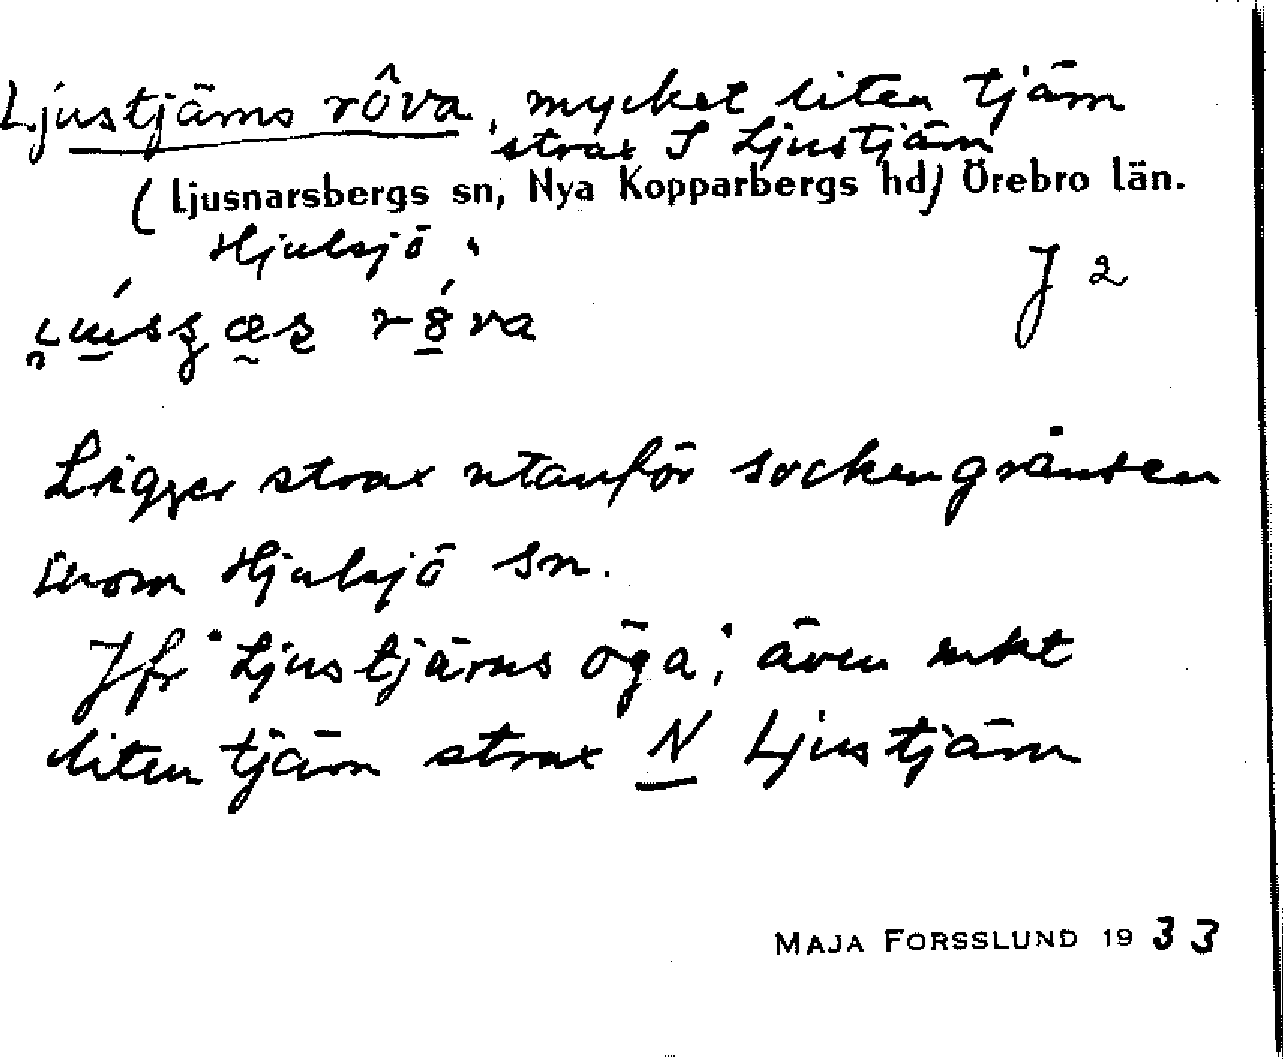 Ljustjärns rôva, mycket liten tjärn
strax S Ljustjärn
(Ljusnarsbergs sn, Nya Kopparbergs hd) Örebro län.
Hjulsjö "
J 2
Ligger strax utanför sockengränsen
inom Hjulsjö sn.
Jfr "Ljustjärns öga", även mkt
liten tjärn strax N Ljustjärn
MAJA FORSSLUND 1933